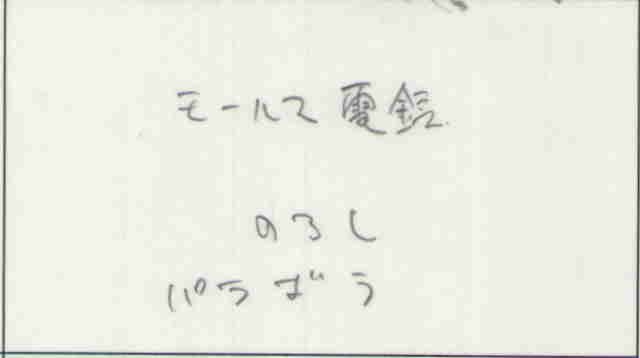 モールス電鍵
のろし
パラボラ